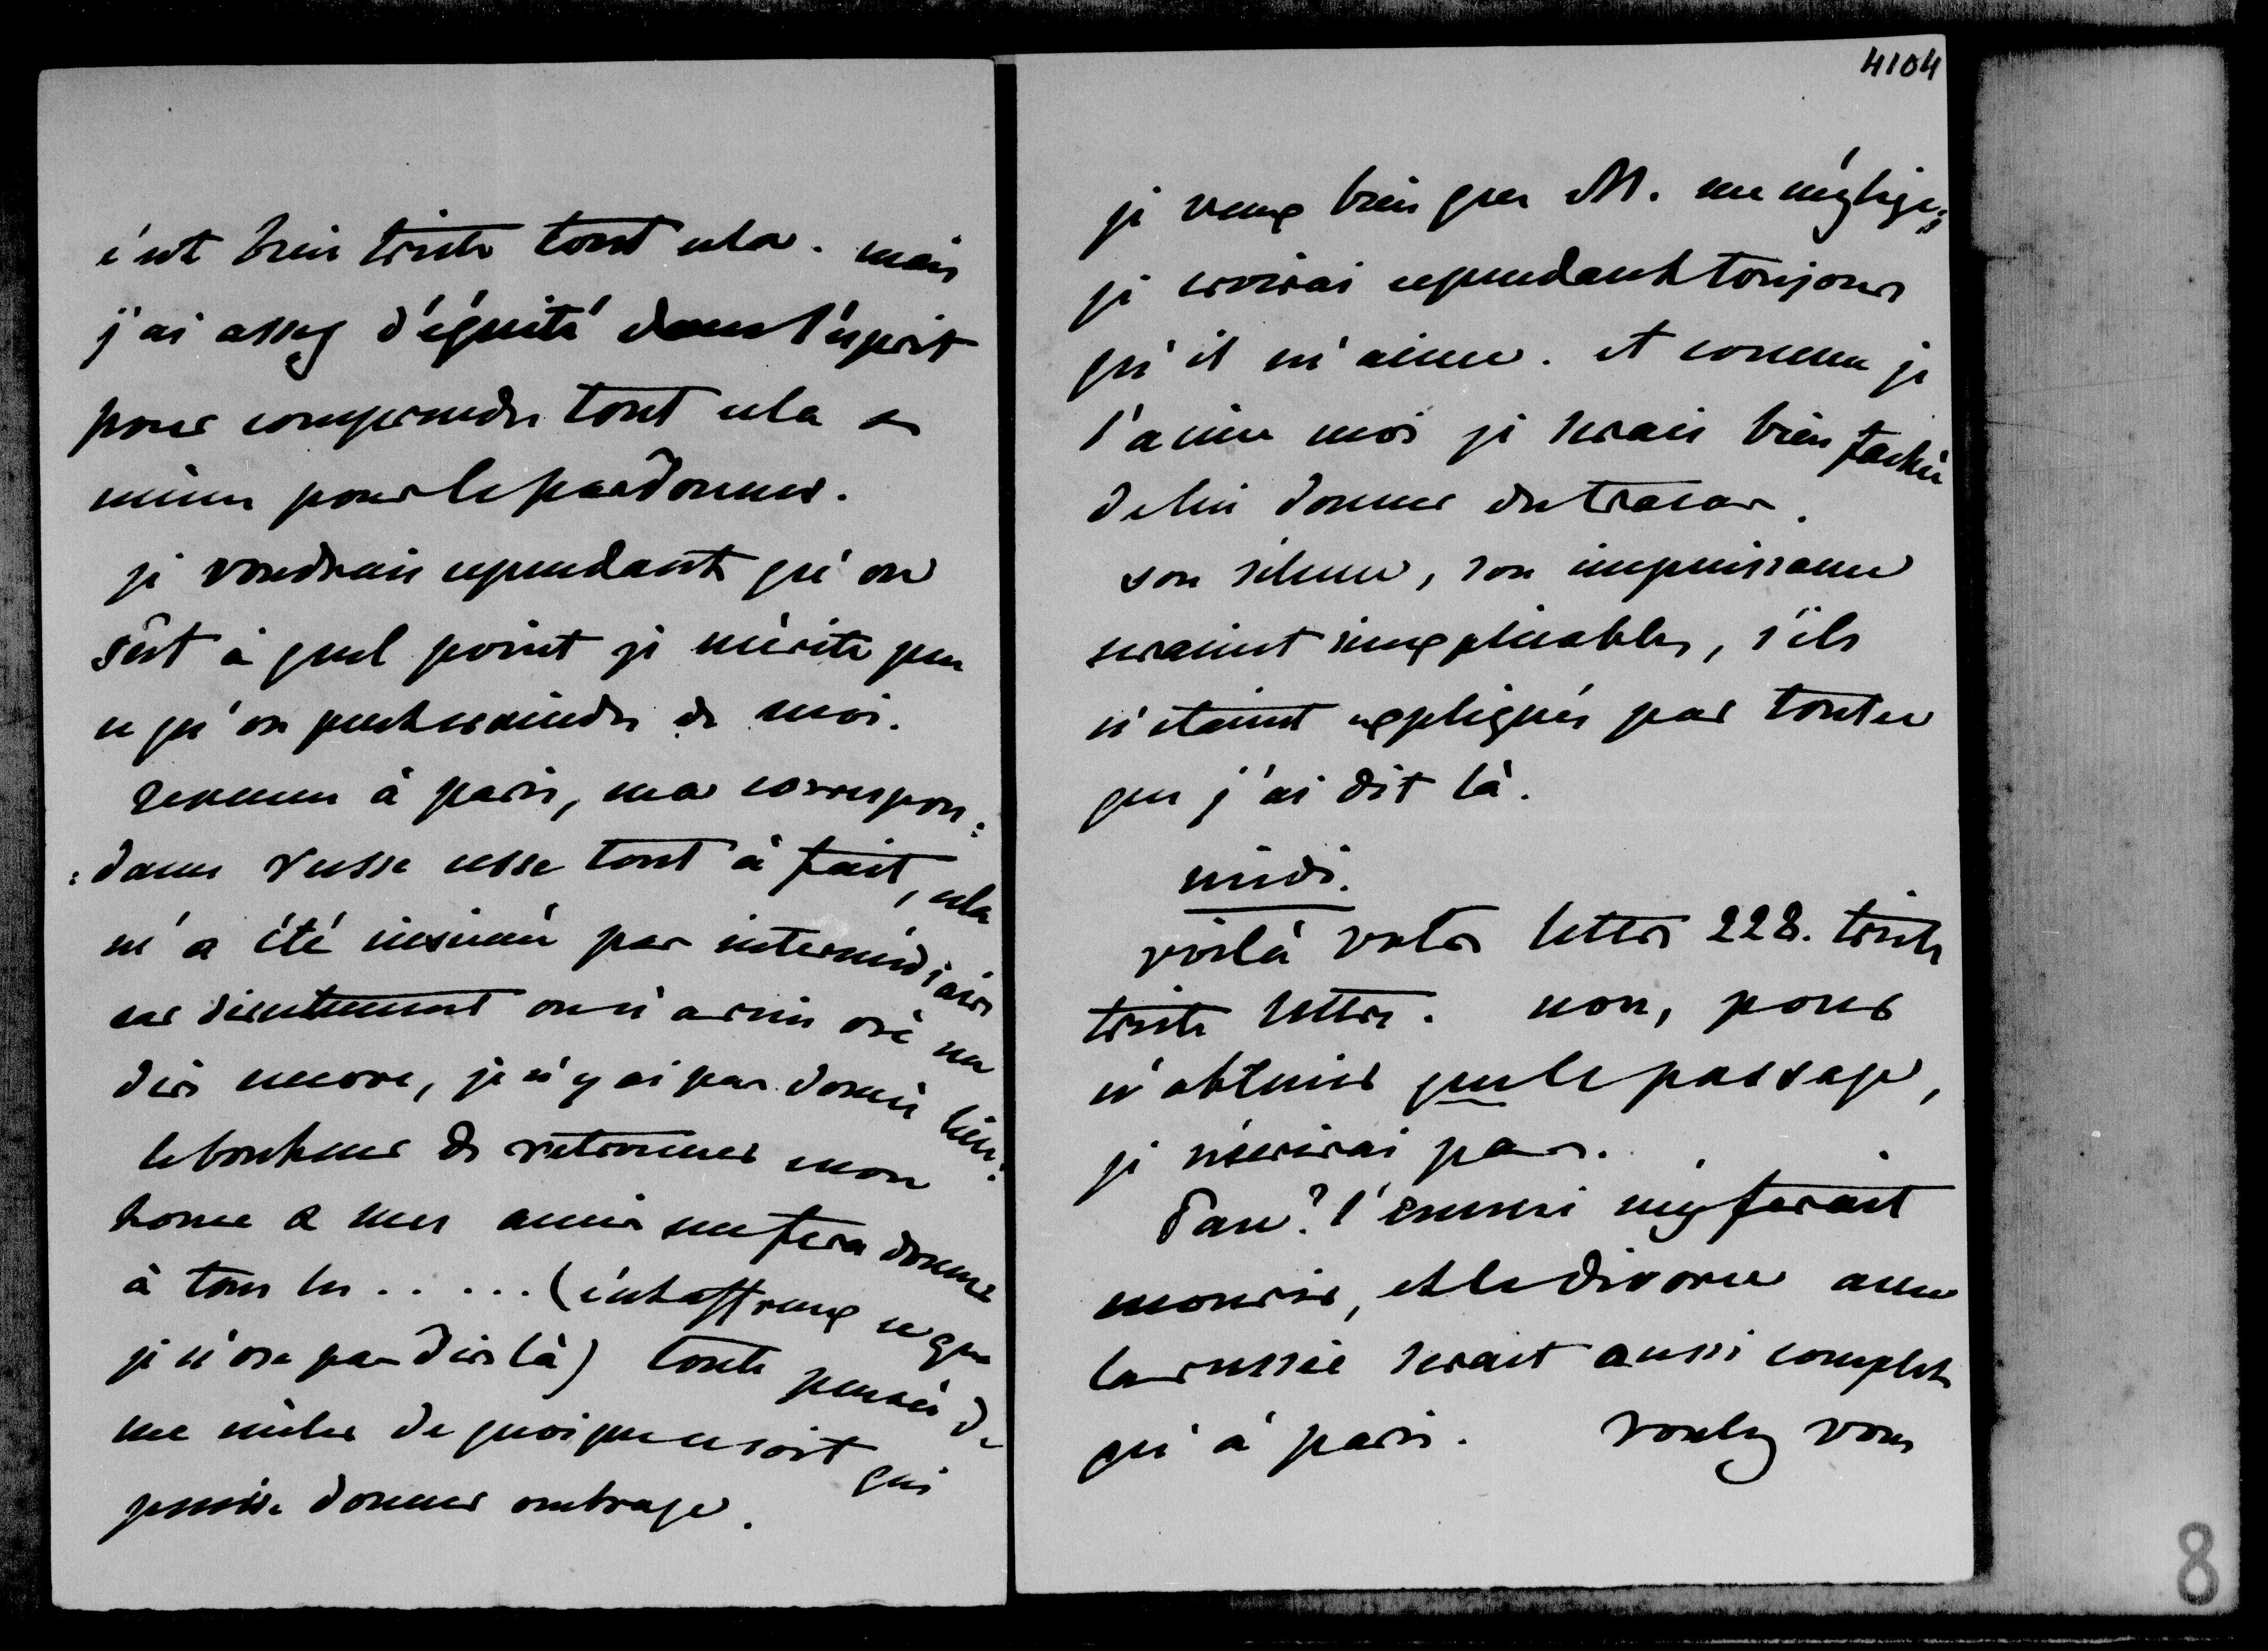 c'est bien triste tout cela. mais
j'ai assez d'équité dans l'esprit
pour comprendre tout cela &
même pour le pardonner.
je voudrais cependant qu'on
sût à quel point je mérite peu
ce qu'on peut craindre de moi.
revenue à paris, ma correspon:
:dance Russe cesse tout à fait, cela
m'a été insinué par intermédiaire
car directement on n'a rien osé me
dire encore, je n'y ai pas donné lieu.
le bonheur de retrouver mon
home & mes amis me fera donner
à tous les ..... (c'est affreux ce que
je n'ose pas dire là) toute pensée de
me mêler de quoique ce soit qui
puisse donner ombrage.
4104
je veux bien que M. me néglige,
je croirai cependant toujours
qu'il m'aime. et comme je
l'aime moi je serais bien fachée
de lui donner du tracas.
son silence, son impuissance
seraient inexplicables, s'ils
n'étaient expliqués par tout ce
que j'ai dit là.
midi.
voilà votre lettre 228. triste
triste lettre. non, pour
n'obtenir que le passage,
je n'écrirai pas.
Pau? l'ennui m'y ferait
mourir, et le divorce avec
la russie serait aussi complet
qu'à paris. voulez vous
8